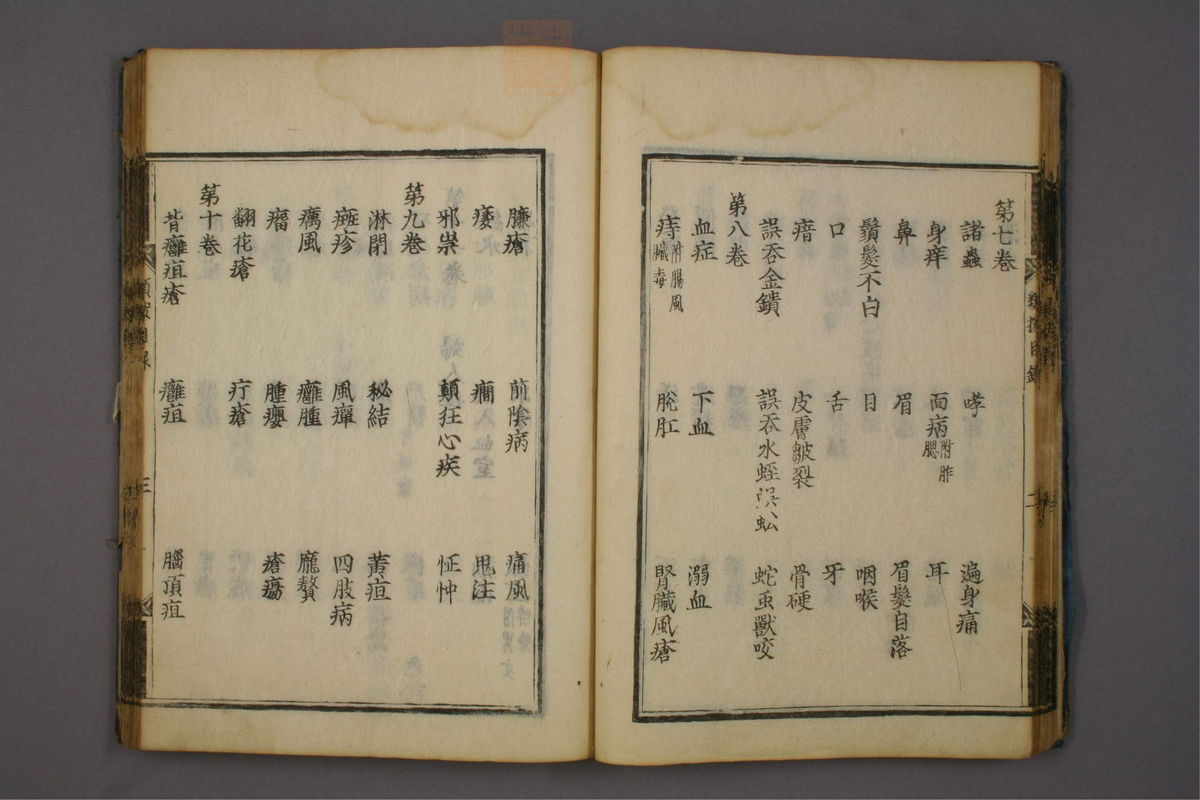 第七卷
諸蟲 哮 遍身痛
身痒 面病附胙腮 耳
鼻 眉 眉髮自落
鬚髮不白 目 咽喉
口 舌 牙
瘖 皮膚皺裂 骨硬
誤吞金鐀 誤吞水蛭蜈蚣 蛇虫獸咬
第八卷
血症 下血 溺血
痔附腸風臟毒 脫肛 腎臟風瘡
臁瘡 前陰病 痛風
痿 癎 鬼注
邪祟 顛狂心疾 怔忡
第九卷
淋閉 秘結 黃疸
斑疹 風癉 四肢病
癘風 癰腫 龐贅
瘤 腫癭 瘡瘍
翻花瘡 疔瘡
第十卷
背癰疽瘡 癰疽 腦頂疽
目錄
二
三